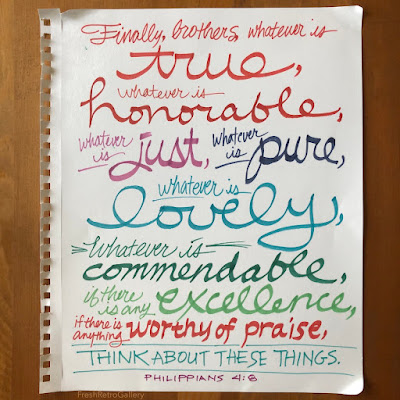 Finally, brothers, whatever is
true,
whatever is
honorable,
whatever is just, whatever is pure,
whatever is
lovely,
Whatever is
commendable,
if there is any excellence,
if there is anything worthy of praise,
THINK ABOUT THESE THINGS.
PHILIPPIANS 4:8
FreshRetroGallery